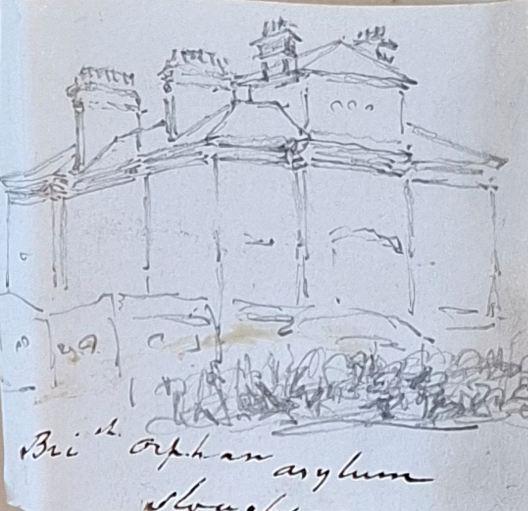 Bri sh. orphan
asylum
Slough